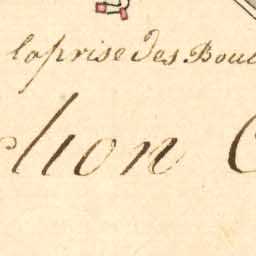 laprise des Bouc
lion C